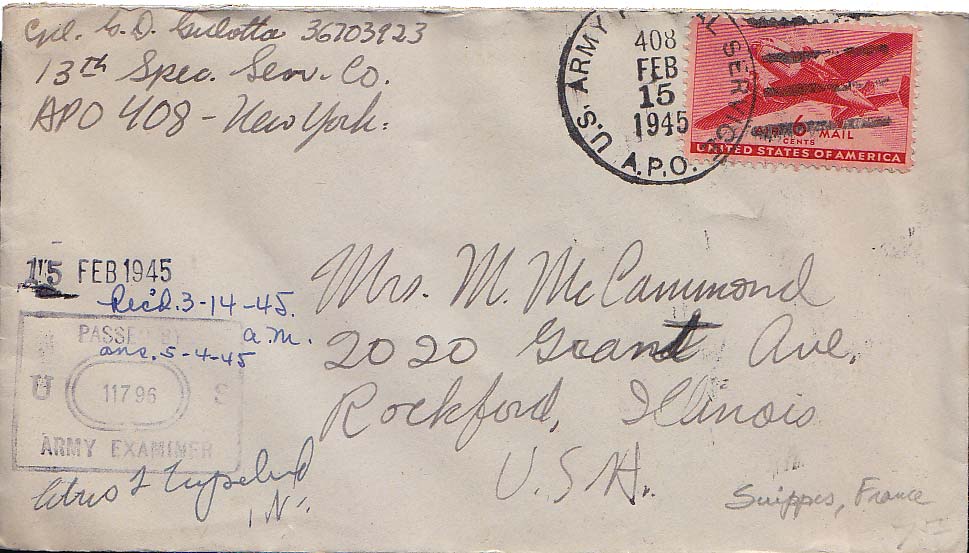 Cpl. G. D. Gulotta 36703923
13th Spec. Serv. Co.
APO 408 - New York.
U.S. ARMY SERVICE
408
FEB
15
1945
A.P.O.
AIR 6 MAIL
CENTS
UNITED STATES OF AMERICA
15 FEB 1945
Rec'd. 3-14-45.
a.m.
ans. 5-4-45
PASSED BY
U S
11796
ARMY EXAMINER
Mrs. M. McCammond
2020 Grant Ave.
Rockford, Illinois
U.S.A.
Suippes, France